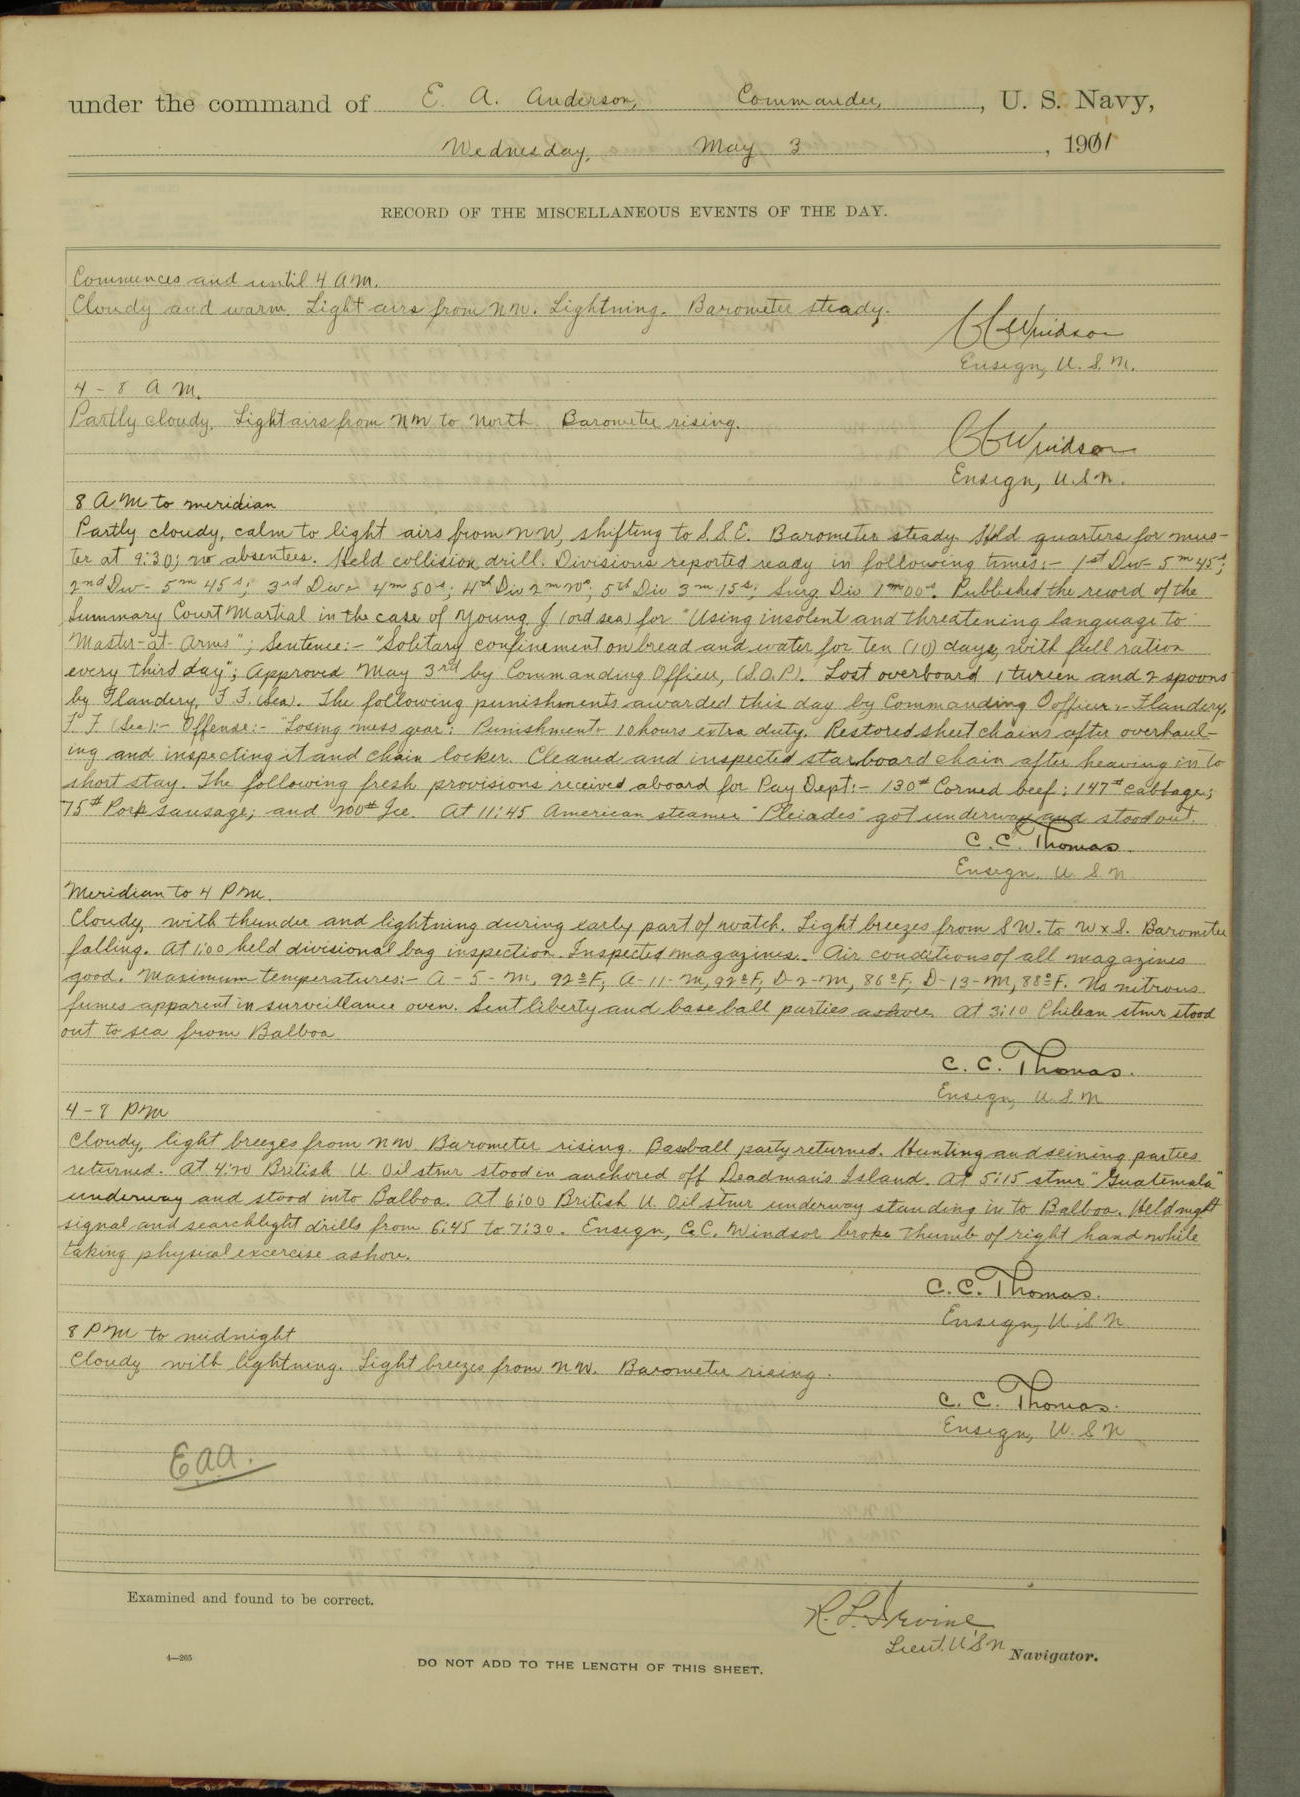 under the command of E. A. Anderson, Commander, U. S. Navy,
Wednesday, May 3, 1911
RECORD OF THE MISCELLANEOUS EVENTS OF THE DAY.
Commences and until 4 A.M.
Cloudy and warm. Light airs from NW. Lightning. Barometer steady.
CCWindsor
Ensign, U.S.N.
4 - 8 A M.
Partly cloudy. Light airs from NW to North. Barometer rising.
CCWindsor
Ensign, U.S.N.
8 A M to meridian
Partly cloudy, calm to light airs from NW, shifting to S.S.E. Barometer steady. Held quarters for mus-
ter at 9:30; no absentees. Held collision drill. Divisions reported ready in following times:- 1st Div- 5m 45s;
2nd Div- 5m 45s; 3rd Div- 4m 50s; 4th Div 2m 20s; 5th Div 3m 15s; Surg. Div 1m 00s. Published the record of the
Summary Court Martial in the case of Young J (ord sea) for "Using insolent and threatening language to
Master-at-Arms"; Sentence:- "Solitary confinement on bread and water for ten (10) days, with full ration
every third day"; Approved May 3rd by Commanding Officer, (S.O.P.). Lost overboard 1 tureen and 2 spoons
by Flandery, F. F. (Sea). The following punishments awarded this day by Commanding Oofficer:- Flandery,
F. F. (Sea):- Offense:- "Losing mess gear"; Punishment- 10 hours extra duty. Restored sheet chains after overhaul-
ing and inspecting it and chain locker. Cleaned and inspected starboard chain after heaving in to
short stay. The following fresh provisions received aboard for Pay Dept:- 130# Corned beef; 147# cabbage;
75# Pork sausage; and 200# Ice. At 11:45 American steamer "Pleiades" got underway and stood out.
C. C. Thomas.
Ensign, U S N
Meridian to 4 P M.
Cloudy, with thunder and lightning during early part of watch. Light breezes from SW. to W x S. Barometer
falling. At 1:00 held divisional bag inspection. Inspected magazines. Air conditions of all magazines
good. Maximum temperatures:- A-5-M, 92°F; A-11-M, 92°F; D-2-M, 86°F; D-13-M, 88°F. No nitrous
fumes apparent in surveillance oven. Sent liberty and base ball parties ashore. At 3:10 Chilean stmr stood
out to sea from Balboa
C. C. Thomas.
Ensign, U.S.N
4 - 8 P M
Cloudy, light breezes from NW Barometer rising. Baseball party returned. Hunting and seining parties
returned. At 4:20 British U. Oil stmr stood in anchored off Deadman's Island. At 5:15 stmr "Guatemala"
underway and stood into Balboa. At 6:00 British U. Oil stmr underway standing in to Balboa. Held night
signal and searchlight drills from 6:45 to 7:30. Ensign, C.C. Windsor broke thumb of right hand while
taking physical excercise ashore.
C. C. Thomas.
Ensign, U.S N
8 P M to midnight
Cloudy with lightning. Light breezes from NW. Barometer rising.
C. C. Thomas.
Ensign, U. S N
E.A.A.
Examined and found to be correct.
R. L. Irvine
Lieut. U S N Navigator.
4—265
DO NOT ADD TO THE LENGTH OF THIS SHEET.